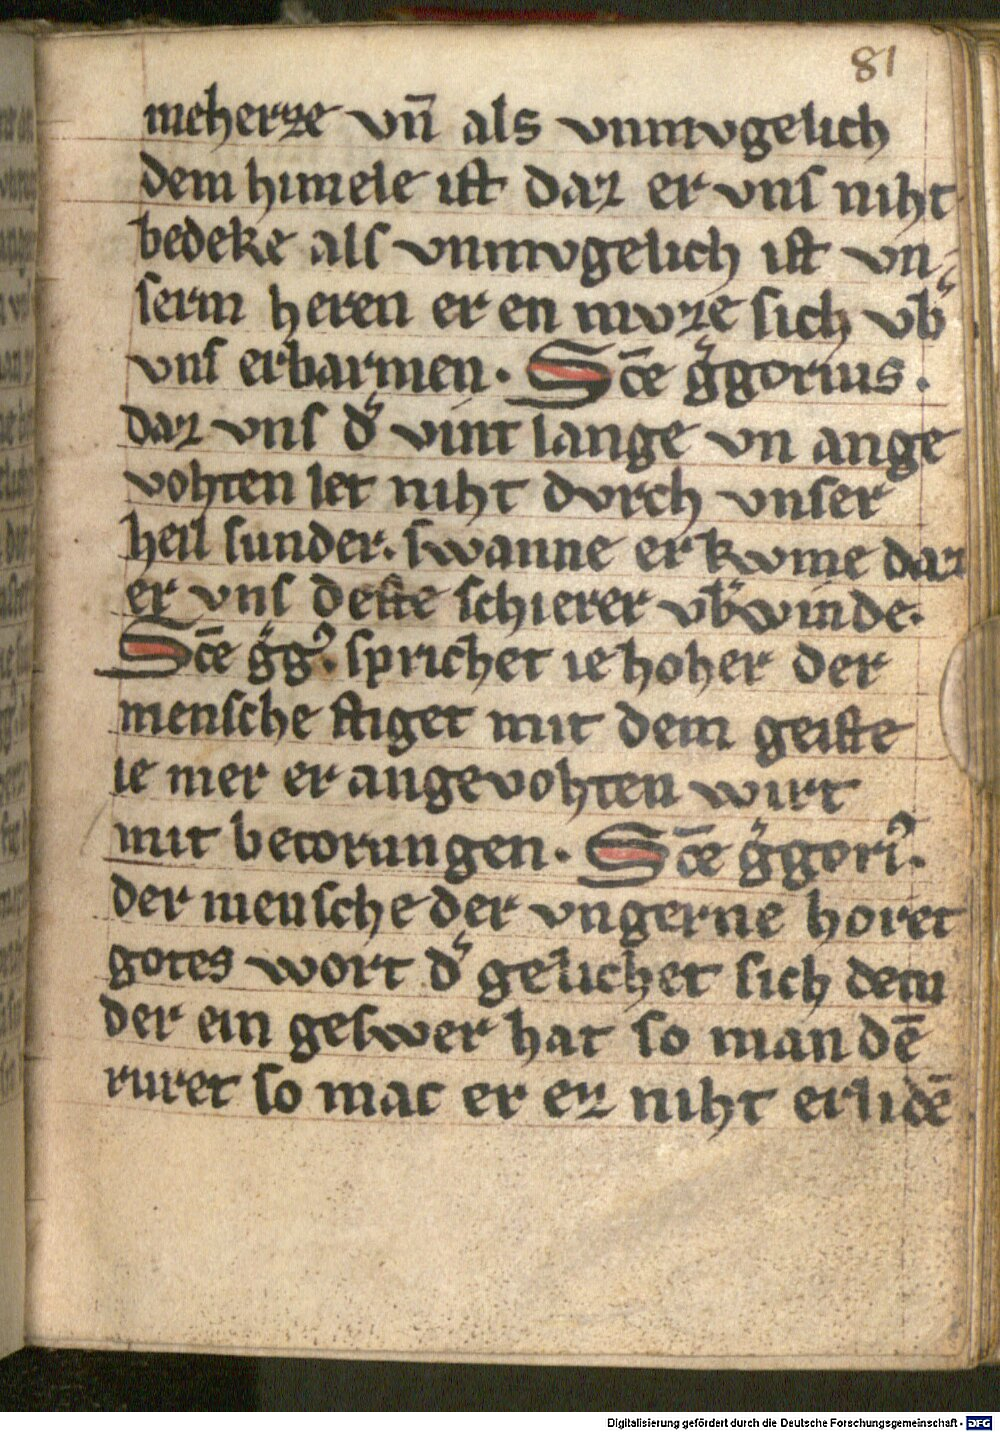 81
meherze vn̄ als vnmvgelich
dem himele ist daz er vns niht
bedeke als vnmvgelich ist vn⸗
serm heren er en mvze sich vb͛
vns erbarmen. Sc̄e g͛gorius.
daz vns d͛ vint lange vn ange
vohten let niht dvrch vnser
heil sunder. swanne er kvme daz
er vns deste schierer vb͛winde.
Sc̄e g͛g᾽. sprichet ie hoher der
mensche stiget mit dem geiste
ie mer er angevohten wirt
mit betorungen. Sc̄e g͛gori᾽.
der mensche der vngerne horet
gotes wort d͛ gelichet sich dem
der ein geswer hat so man dē
ruret so mac er ez niht erlidē
Digitalisierung gefördert durch die Deutsche Forschungsgemeinschaft - DFG